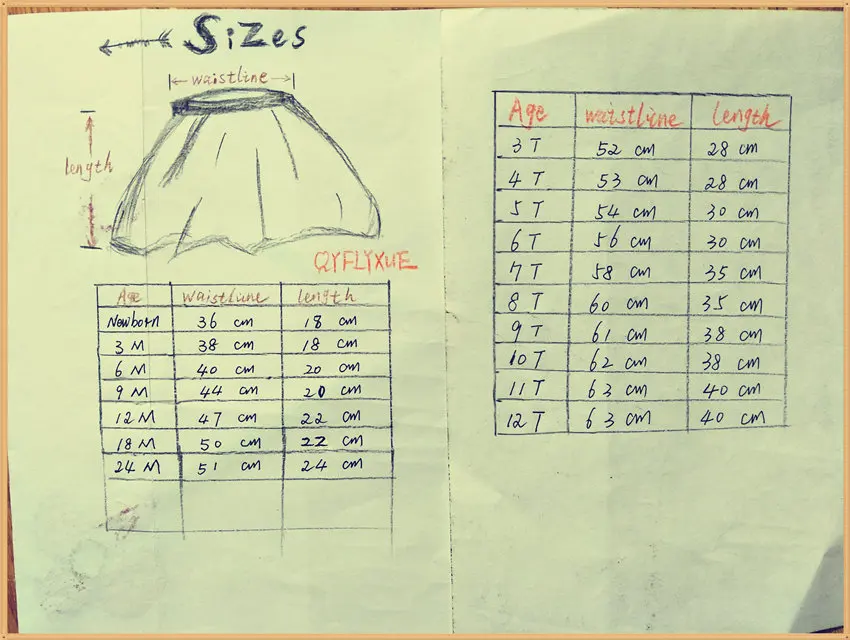 Sizes
waistline
length
QYFLYXUE
Age waistline length
Newborn 36 cm 18 cm
3 M 38 cm 18 cm
6 M 40 cm 20 cm
9 M 44 cm 20 cm
12 M 47 cm 22 cm
18 M 50 cm 22 cm
24 M 51 cm 24 cm
Age waistline length
3 T 52 cm 28 cm
4 T 53 cm 28 cm
5 T 54 cm 30 cm
6 T 56 cm 30 cm
7 T 58 cm 35 cm
8 T 60 cm 35 cm
9 T 61 cm 38 cm
10 T 62 cm 38 cm
11 T 63 cm 40 cm
12 T 63 cm 40 cm